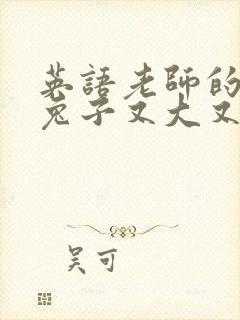 英語老師的
兔子又大又
吴可